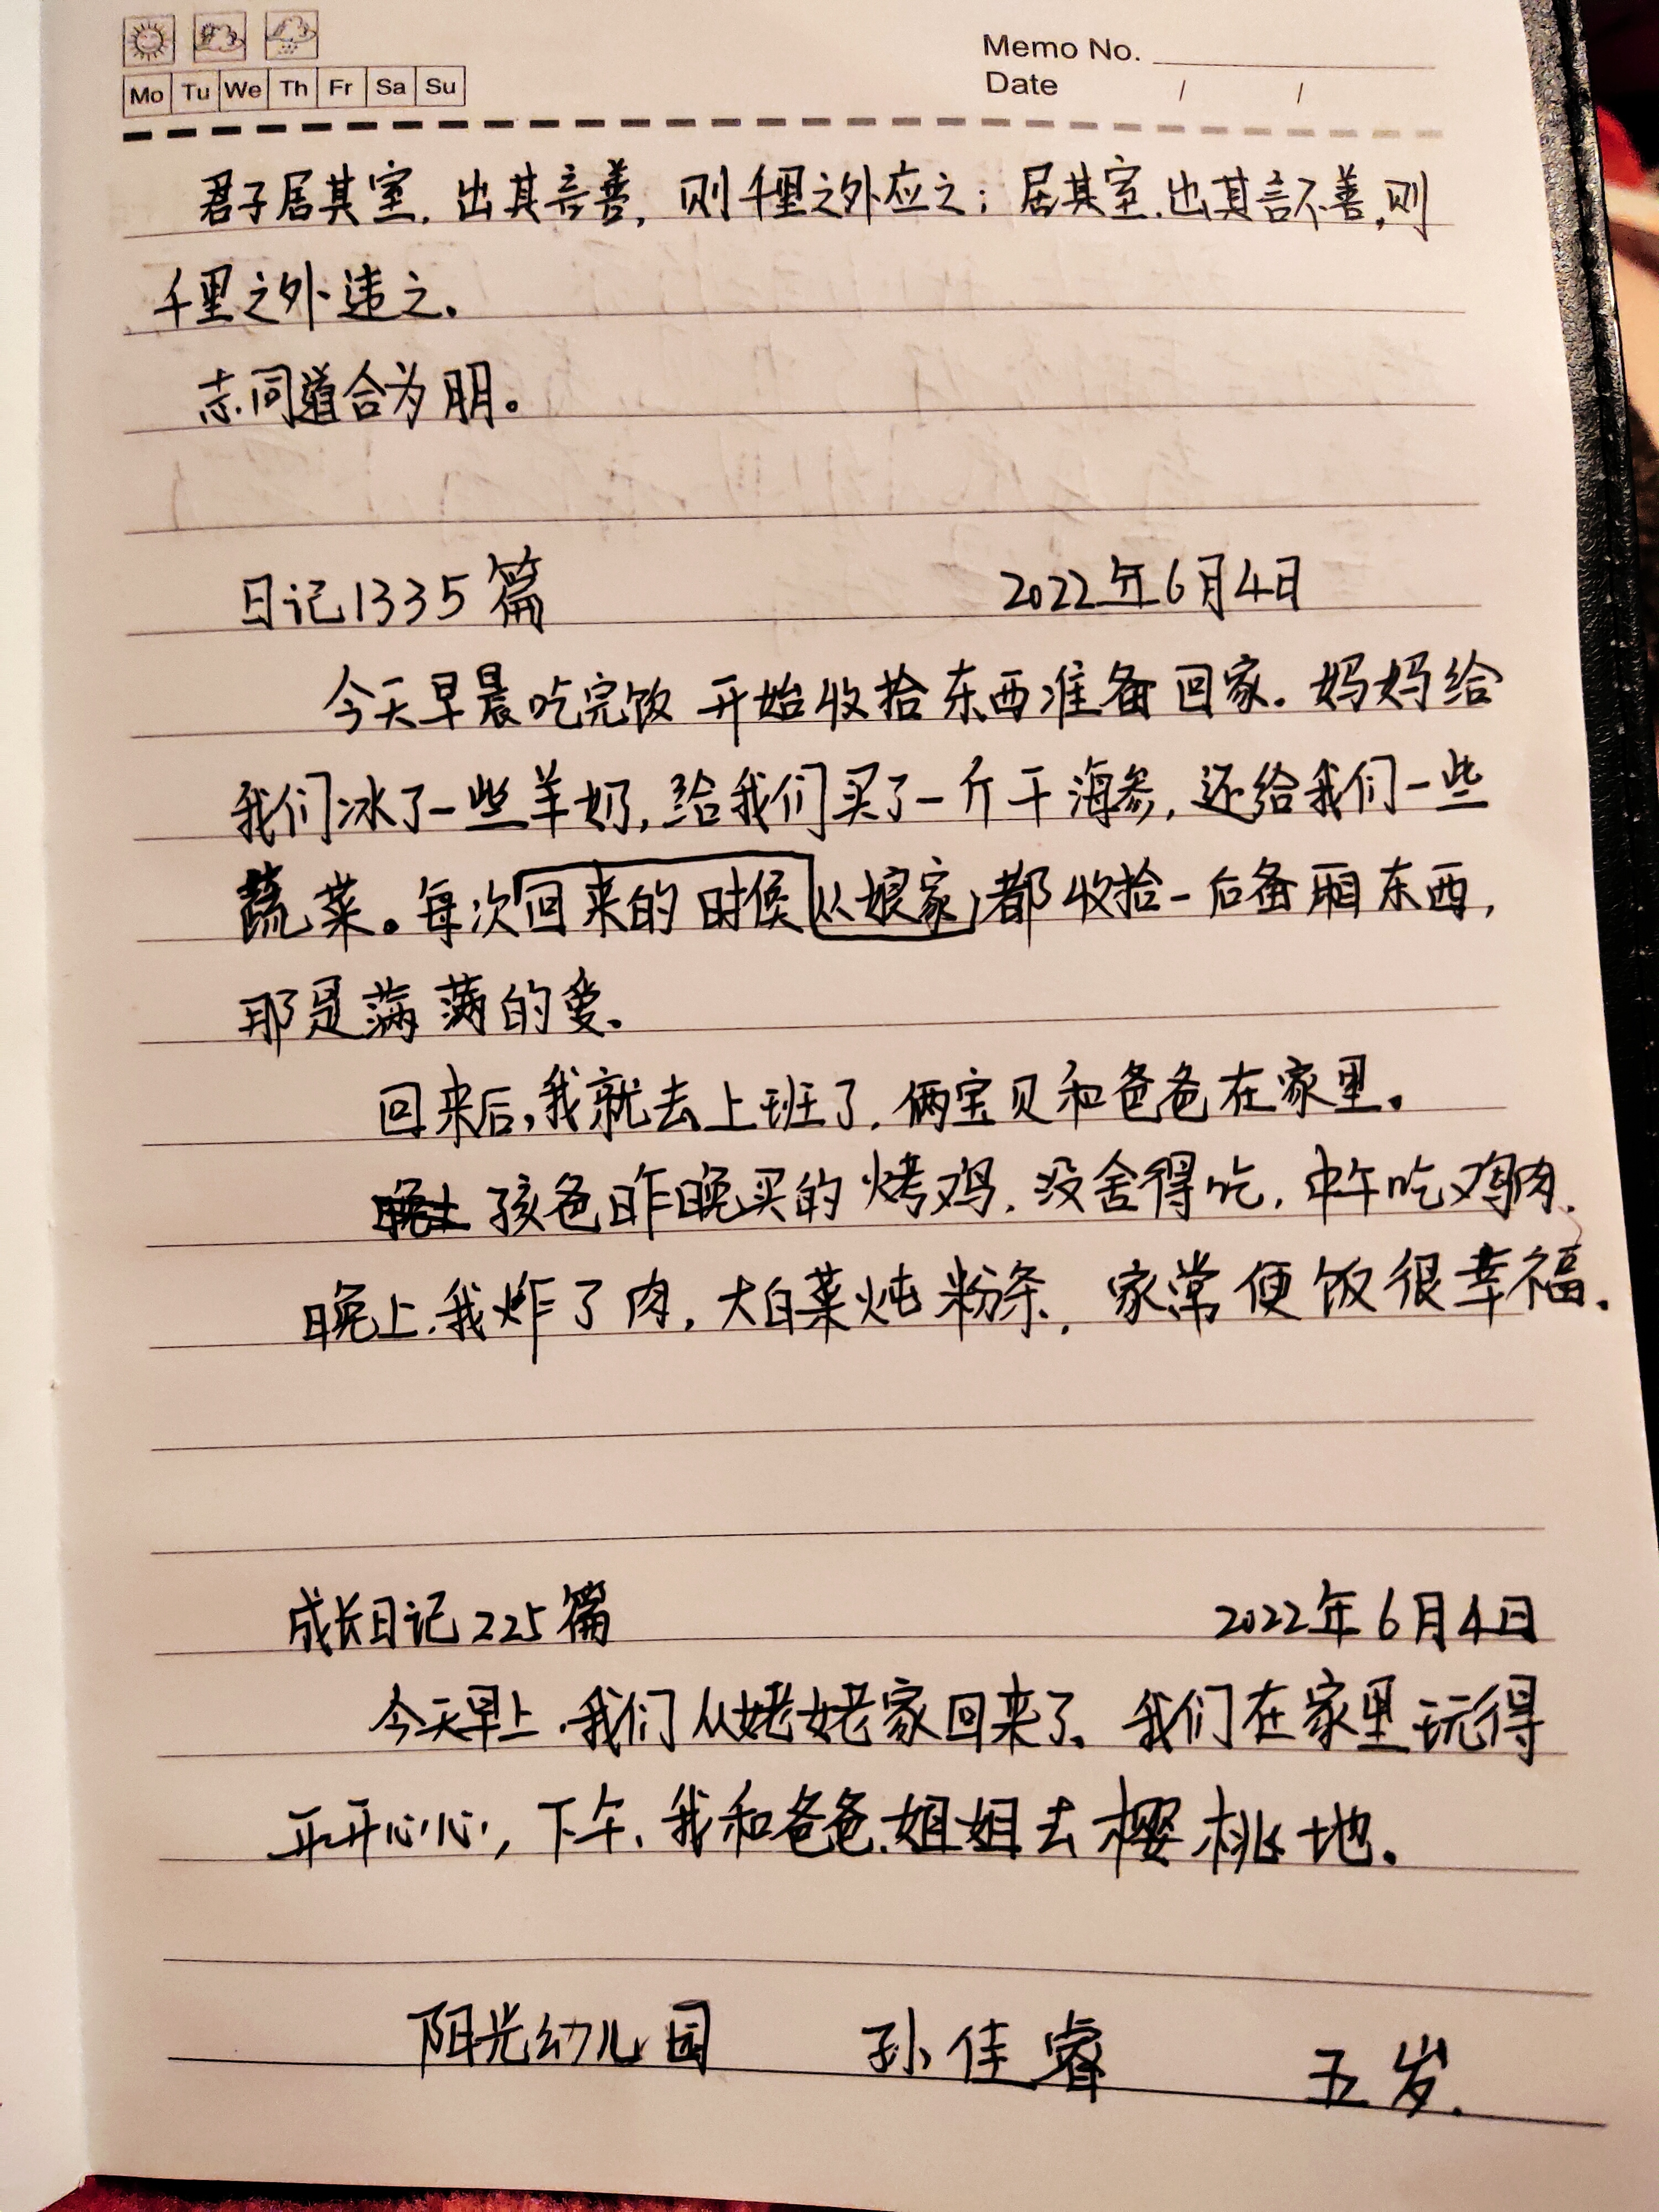 Memo No.
Mo Tu We Th Fr Sa Su
Date / /
君子居其室，出其言善，则千里之外应之；居其室，出其言不善，则
千里之外违之。
志同道合为朋。
日记1335篇 2022年6月4日
今天早晨吃完饭开始收拾东西准备回家。妈妈给
我们冰了一些羊奶，给我们买了一斤干海参，还给我们一些
蔬菜。每次回来的时候从娘家，都收拾一后备厢东西，
那是满满的爱。
回来后，我就去上班了，俩宝贝和爸爸在家里。
孩爸昨晚买的烤鸡，没舍得吃，中午吃鸡肉，
晚上，我炸了肉，大白菜炖粉条，家常便饭很幸福。
成长日记225篇 2022年6月4日
今天早上，我们从姥姥家回来了，我们在家里玩得
开开心心，下午，我和爸爸、姐姐去樱桃地。
阳光幼儿园 孙佳睿 五岁.